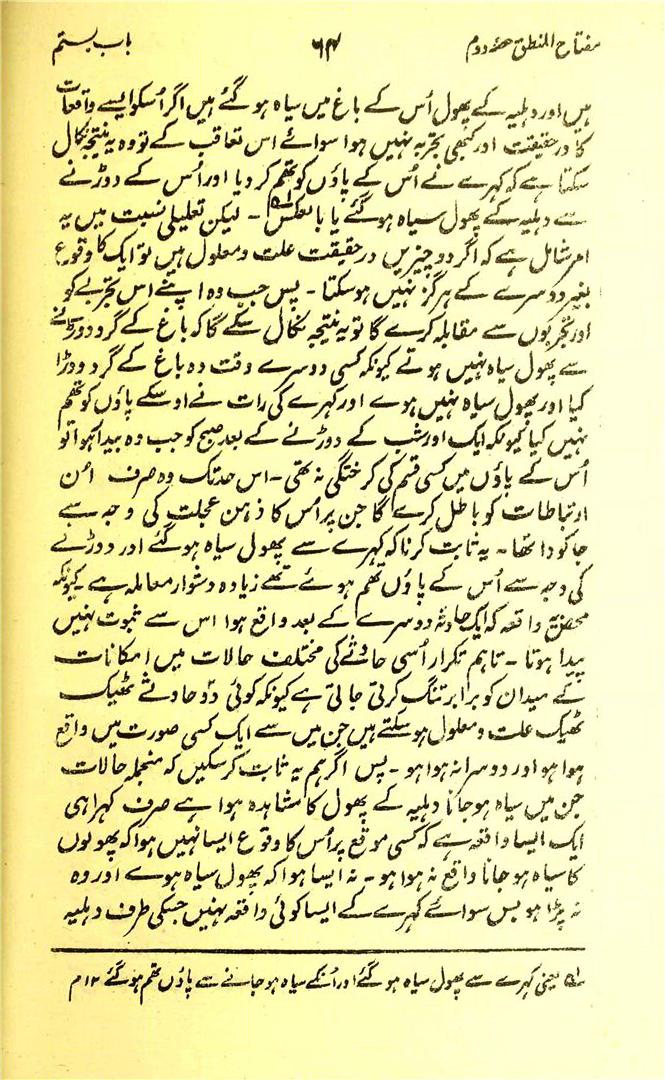 مفتاح المنطق حصۂ دوم ۶۴ باب بستم
ہیں اور دہلیہ کے پھول اُس کے باغ میں سیاہ ہو گئے ہیں اگر اُسکو ایسے واقعات
کا درحقیقت اور کبھی تجربہ نہیں ہوا سوائے اس تعاقب کے تو وہ یہ نتیجہ نکال
سکتا ہے کہ کہرے نے اُس کے پاؤں کو تھم کر دیا اور اُس کے دوڑنے
سے دہلیہ کے پھول سیاہ ہو گئے یا بالعکس۔ لیکن تعلیلی نسبت میں یہ
امر شامل ہے کہ اگر دو چیزیں درحقیقت علت و معلول ہیں تو ایک کا وقوع
بغیر دوسرے کے ہرگز نہیں ہو سکتا۔ پس جب وہ اپنے اس تجربے کو
اور تجربوں سے مقابلہ کرے گا تو یہ نتیجہ نکال سکے گا کہ باغ کے گرد دوڑنے
سے پھول سیاہ نہیں ہوتے کیونکہ کسی دوسرے وقت وہ باغ کے گرد دوڑا
کیا اور پھول سیاہ نہیں ہوے اور کہرے کی رات نے اوسکے پاؤں کو تھم
نہیں کیا کیونکہ ایک اور شب کے دوڑنے کے بعد صبح کو جب وہ بیدار ہوا تو
اُس کے پاؤں میں کسی قسم کی کرختگی نہ تھی۔ اس حد تک وہ صرف اُن
ارتباطات کو باطل کرے گا جن پر اُس کا ذہن عجلت کی وجہ سے
جا کودا تھا۔ یہ ثابت کرنا کہ کہرے سے پھول سیاہ ہو گئے اور دوڑنے
کی وجہ سے اُس کے پاؤں تھم ہوئے تھے زیادہ دشوار معاملہ ہے۔ کیونکہ
محض یہ واقعہ کہ ایک حادثہ دوسرے کے بعد واقع ہوا اس سے ثبوت نہیں
پیدا ہوتا۔ تاہم تکرار اُسی حادثے کی مختلف حالات میں امکانات
کے میدان کو برابر تنگ کرتی جاتی ہے کیونکہ کوئی دو حادثے ٹھیک
ٹھیک علت و معلول ہو سکتے ہیں جن میں سے ایک کسی صورت میں واقع
ہوا ہو اور دوسرا نہ ہوا ہو۔ پس اگر ہم یہ ثابت کر سکیں کہ منجملہ حالات
جن میں سیاہ ہو جانا دہلیہ کے پھول کا مشاہدہ ہوا ہے صرف کہرا ہی
ایک ایسا واقعہ ہے کہ کسی موقع پر اُس کا وقوع ایسا نہیں ہوا کہ پھولوں
کا سیاہ ہو جانا واقع نہ ہوا ہو۔ نہ ایسا ہوا کہ پھول سیاہ ہوے اور وہ
نہ پڑا ہو بس سوائے کہرے کے ایسا کوئی واقعہ نہیں جسکی طرف دہلیہ
یعنی کہرے سے پھول سیاہ ہو گئے اور اُنکے سیاہ ہو جانے سے پاؤں تھم ہو گئے ۱۲ م